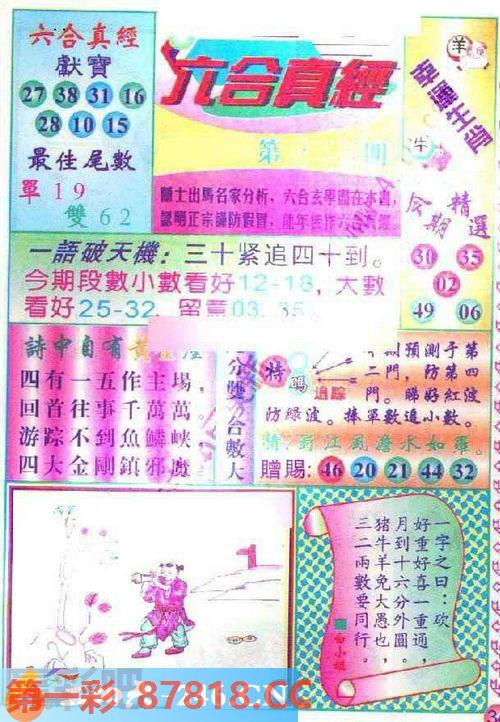 六合真經
獻寶
27 38 31 16
28 10 15
最佳尾數
單19
雙62
六合真經
第 期
隱士出馬名家分析，六合玄學盡在本書，
認明正宗謹防假冒，龍年佳作六合真經
羊
幸運生肖
牛
精選
30 35
02
49 06
一語破天機：三十紧追四十到。
今期段數小數看好12-18，大數
看好25-32，留意03.35
詩中自有黃金屋
四有一五作主場，
回首往事千萬萬。
游踪不到魚鱗峽，
四大金剛鎮邪魔
分雙合數大
特碼追踪
預測于第
二門，防第四
門。睇好紅波
防綠波。捧單數追小數。
贈賜：46 20 21 44 32
一字之曰：砍
好重好喜一重通，
月到十六分外圓，
猪牛羊兔大愚也，
三二兩數要同行。
白小姐
第一彩 87818.CC